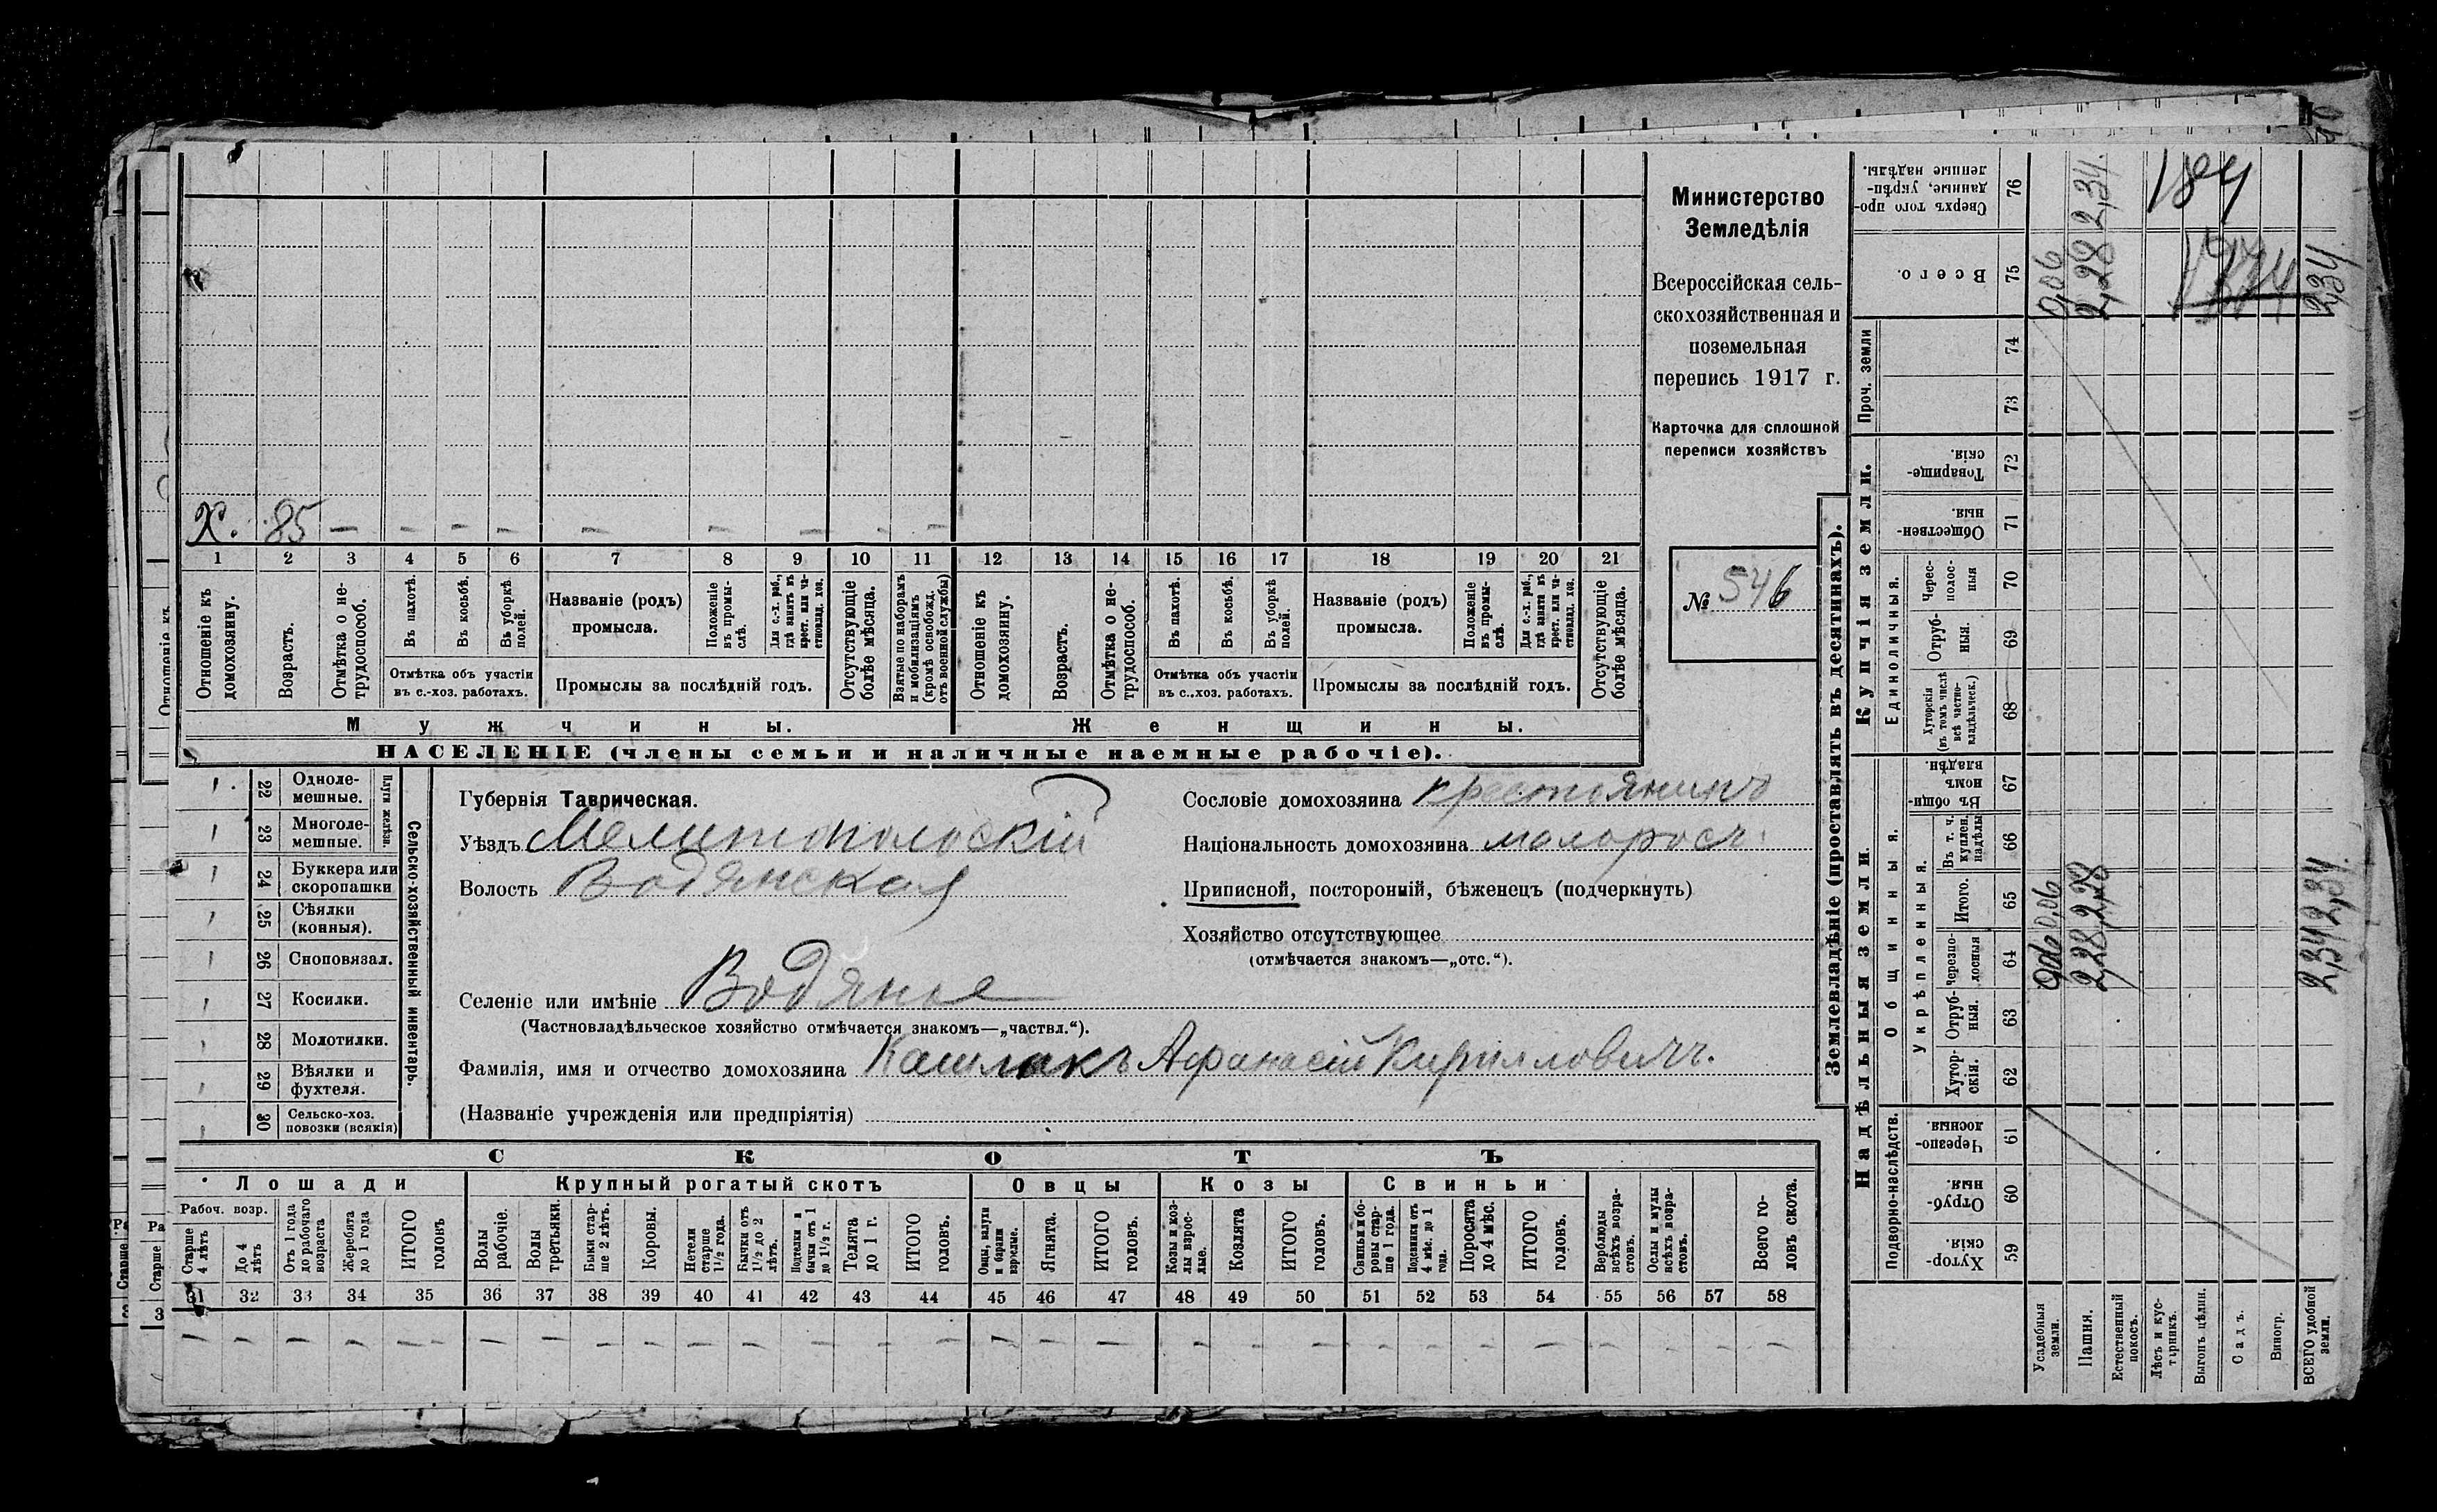 Министерство
Земледѣлія
Всероссійская сель-
скохозяйственная и
поземельная
перепись 1917 г.
Карточка для сплошной
переписи хозяйствъ
№ 546
Х. 85 — — — — — — — — —
1 2 3 4 5 6 7 8 9 10 11 12 13 14 15 16 17 18 19 20 21
Отношеніе къ домохозяину.
Возрастъ.
Отмѣтка о не-трудоспособ.
Въ пахотѣ.
Въ косьбѣ.
Въ уборкѣ полей.
Названіе (родъ) промысла.
Положеніе въ промы-слѣ.
Для с.-х. раб., гдѣ занятъ въ крест. или ча-стновлад. хоз.
Отсутствующіе болѣе мѣсяца.
Взятые по наборамъ и мобилизаціямъ (кромѣ освобожд. отъ военной службы)
Отношеніе къ домохозяину.
Возрастъ.
Отмѣтка о не-трудоспособ.
Въ пахотѣ.
Въ косьбѣ.
Въ уборкѣ полей.
Названіе (родъ) промысла.
Положеніе въ промы-слѣ.
Для с.-х. раб., гдѣ занята въ крест. или ча-стновлад. хоз.
Отсутствующіе болѣе мѣсяца.
Отмѣтка объ участіи въ с.-хоз. работахъ.
Промыслы за послѣдній годъ.
Отмѣтка объ участіи въ с..хоз. работахъ.
Промыслы за послѣдній годъ.
Мужчины. Женщины.
НАСЕЛЕНІЕ (члены семьи и наличные наемные рабочіе).
22 Одноле-мешные.
23 Многоле-мешные.
Плуги желѣзн.
24 Буккера или скоропашки
25 Сѣялки (конныя).
26 Сноповязал.
27 Косилки.
28 Молотилки.
29 Вѣялки и фухтеля.
30 Сельско-хоз. повозки (всякія)
Сельско-хозяйственный инвентарь.
Губернія Таврическая.
Уѣздъ Мелитопольскій
Волость Водянская
Селеніе или имѣніе Водяное
(Частновладѣльческое хозяйство отмѣчается знакомъ—„частвл.“).
Фамилія, имя и отчество домохозяина Кашлакъ Афанасій Кирилловичъ.
(Названіе учрежденія или предпріятія)
Сословіе домохозяина крестьянинъ
Національность домохозяина малороссъ.
Приписной, посторонній, бѣженецъ (подчеркнуть)
Хозяйство отсутствующее
(отмѣчается знакомъ—„отс.“).
СКОТЪ
Лошади Крупный рогатый скотъ Овцы Козы Свиньи
Рабоч. возр.
Старше 4 лѣтъ
До 4 лѣтъ
Отъ 1 года до рабочаго возраста
Жеребята до 1 года
ИТОГО головъ
Волы рабочіе.
Волы третьяки.
Быки стар-ше 2 лѣтъ.
Коровы.
Нетели старше 1½ года.
Бычки отъ 1½ до 2 лѣтъ.
Подтелки и бычки отъ 1 до 1½ г.
Телята до 1 г.
ИТОГО головъ.
Овцы, валухи и бараны взрослые.
Ягнята.
ИТОГО головъ.
Козы и коз-лы взрос-лые.
Козлята
ИТОГО головъ.
Свиньи и бо-ровы стар-ше 1 года.
Подсвинки отъ 4 мѣс. до 1 года.
Поросята до 4 мѣс.
ИТОГО головъ.
Верблюды всѣхъ возра-стовъ.
Ослы и мулы всѣхъ возра-стовъ.
Всего го-ловъ скота.
31 32 33 34 35 36 37 38 39 40 41 42 43 44 45 46 47 48 49 50 51 52 53 54 55 56 57 58
Землевладѣніе (проставлять въ десятинахъ).
Надѣльныя земли. Купчія земли. Проч. земли
Подворно-наслѣдств. Общинныя. Единоличныя.
Укрѣпленныя.
Хутор-скія. 59
Отруб-ныя. 60
Черезпо-лосныя. 61
Хутор-скія. 62
Отруб-ныя. 63
Черезпо-лосныя 64
Итого. 65
Въ т. ч. куплен. надѣлы 66
Въ общи-номъ владѣн. 67
Хуторскія (въ томъ числѣ всѣ частно-владѣльческ.) 68
Отруб-ныя. 69
Черес-полос-ныя 70
Обществен-ныя. 71
Товарище-скія. 72
73
74
Всего. 75
Сверхъ того про-данные, укрѣп-ленные надѣлы. 76
Усадебныя земли. 0,06 0,06 0,06
Пашня. 2,28 2,28 2,28 2,34
Естественный покосъ.
Лѣсъ и кус-тарникъ.
Выгонъ цѣлин.
Садъ.
Виногр.
ВСЕГО удобной земли. 2,34 2,34 2,34
184